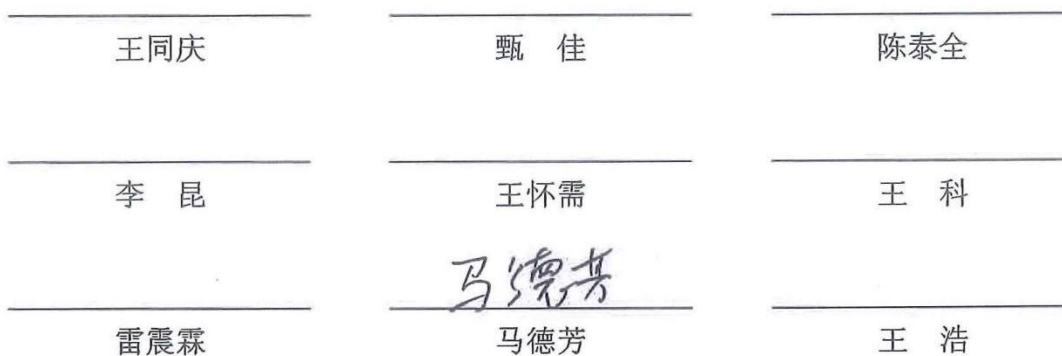 王同庆 甄 佳 陈泰全
李 昆 王怀需 王 科
马德芳
雷震霖 马德芳 王 浩